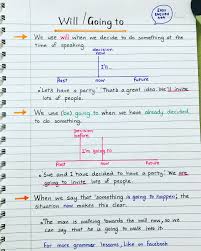 Will / Going to
EASY ENGLISH
We use will when we decide to do something at the
time of speaking.
decision
now
I'll...
Past now future
Let's have a party. That's a great idea. We'll invite
lots of people.
We use (be) going to when we have already decided
to do something.
decision
before
I'm going to
Past now future
Sue and I have decided to have a party. We are
going to invite lots of people.
When we say that 'something is going to happen', the
situation now makes this clear.
The man is walking towards the wall now, so we
can say that he is going to walk into it.
For more grammar lessons, like on Facebook